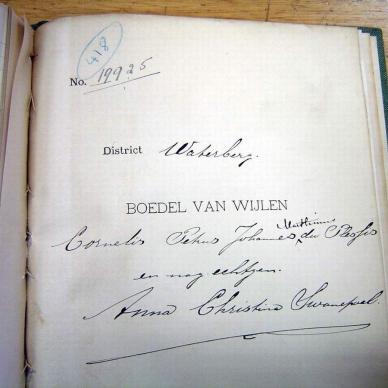 418
No. 19925
District Waterberg.
BOEDEL VAN WIJLEN
Marthinus
Cornelis Petrus Johannes du Plessis
en nog echtgen.
Anna Christina Swanepoel